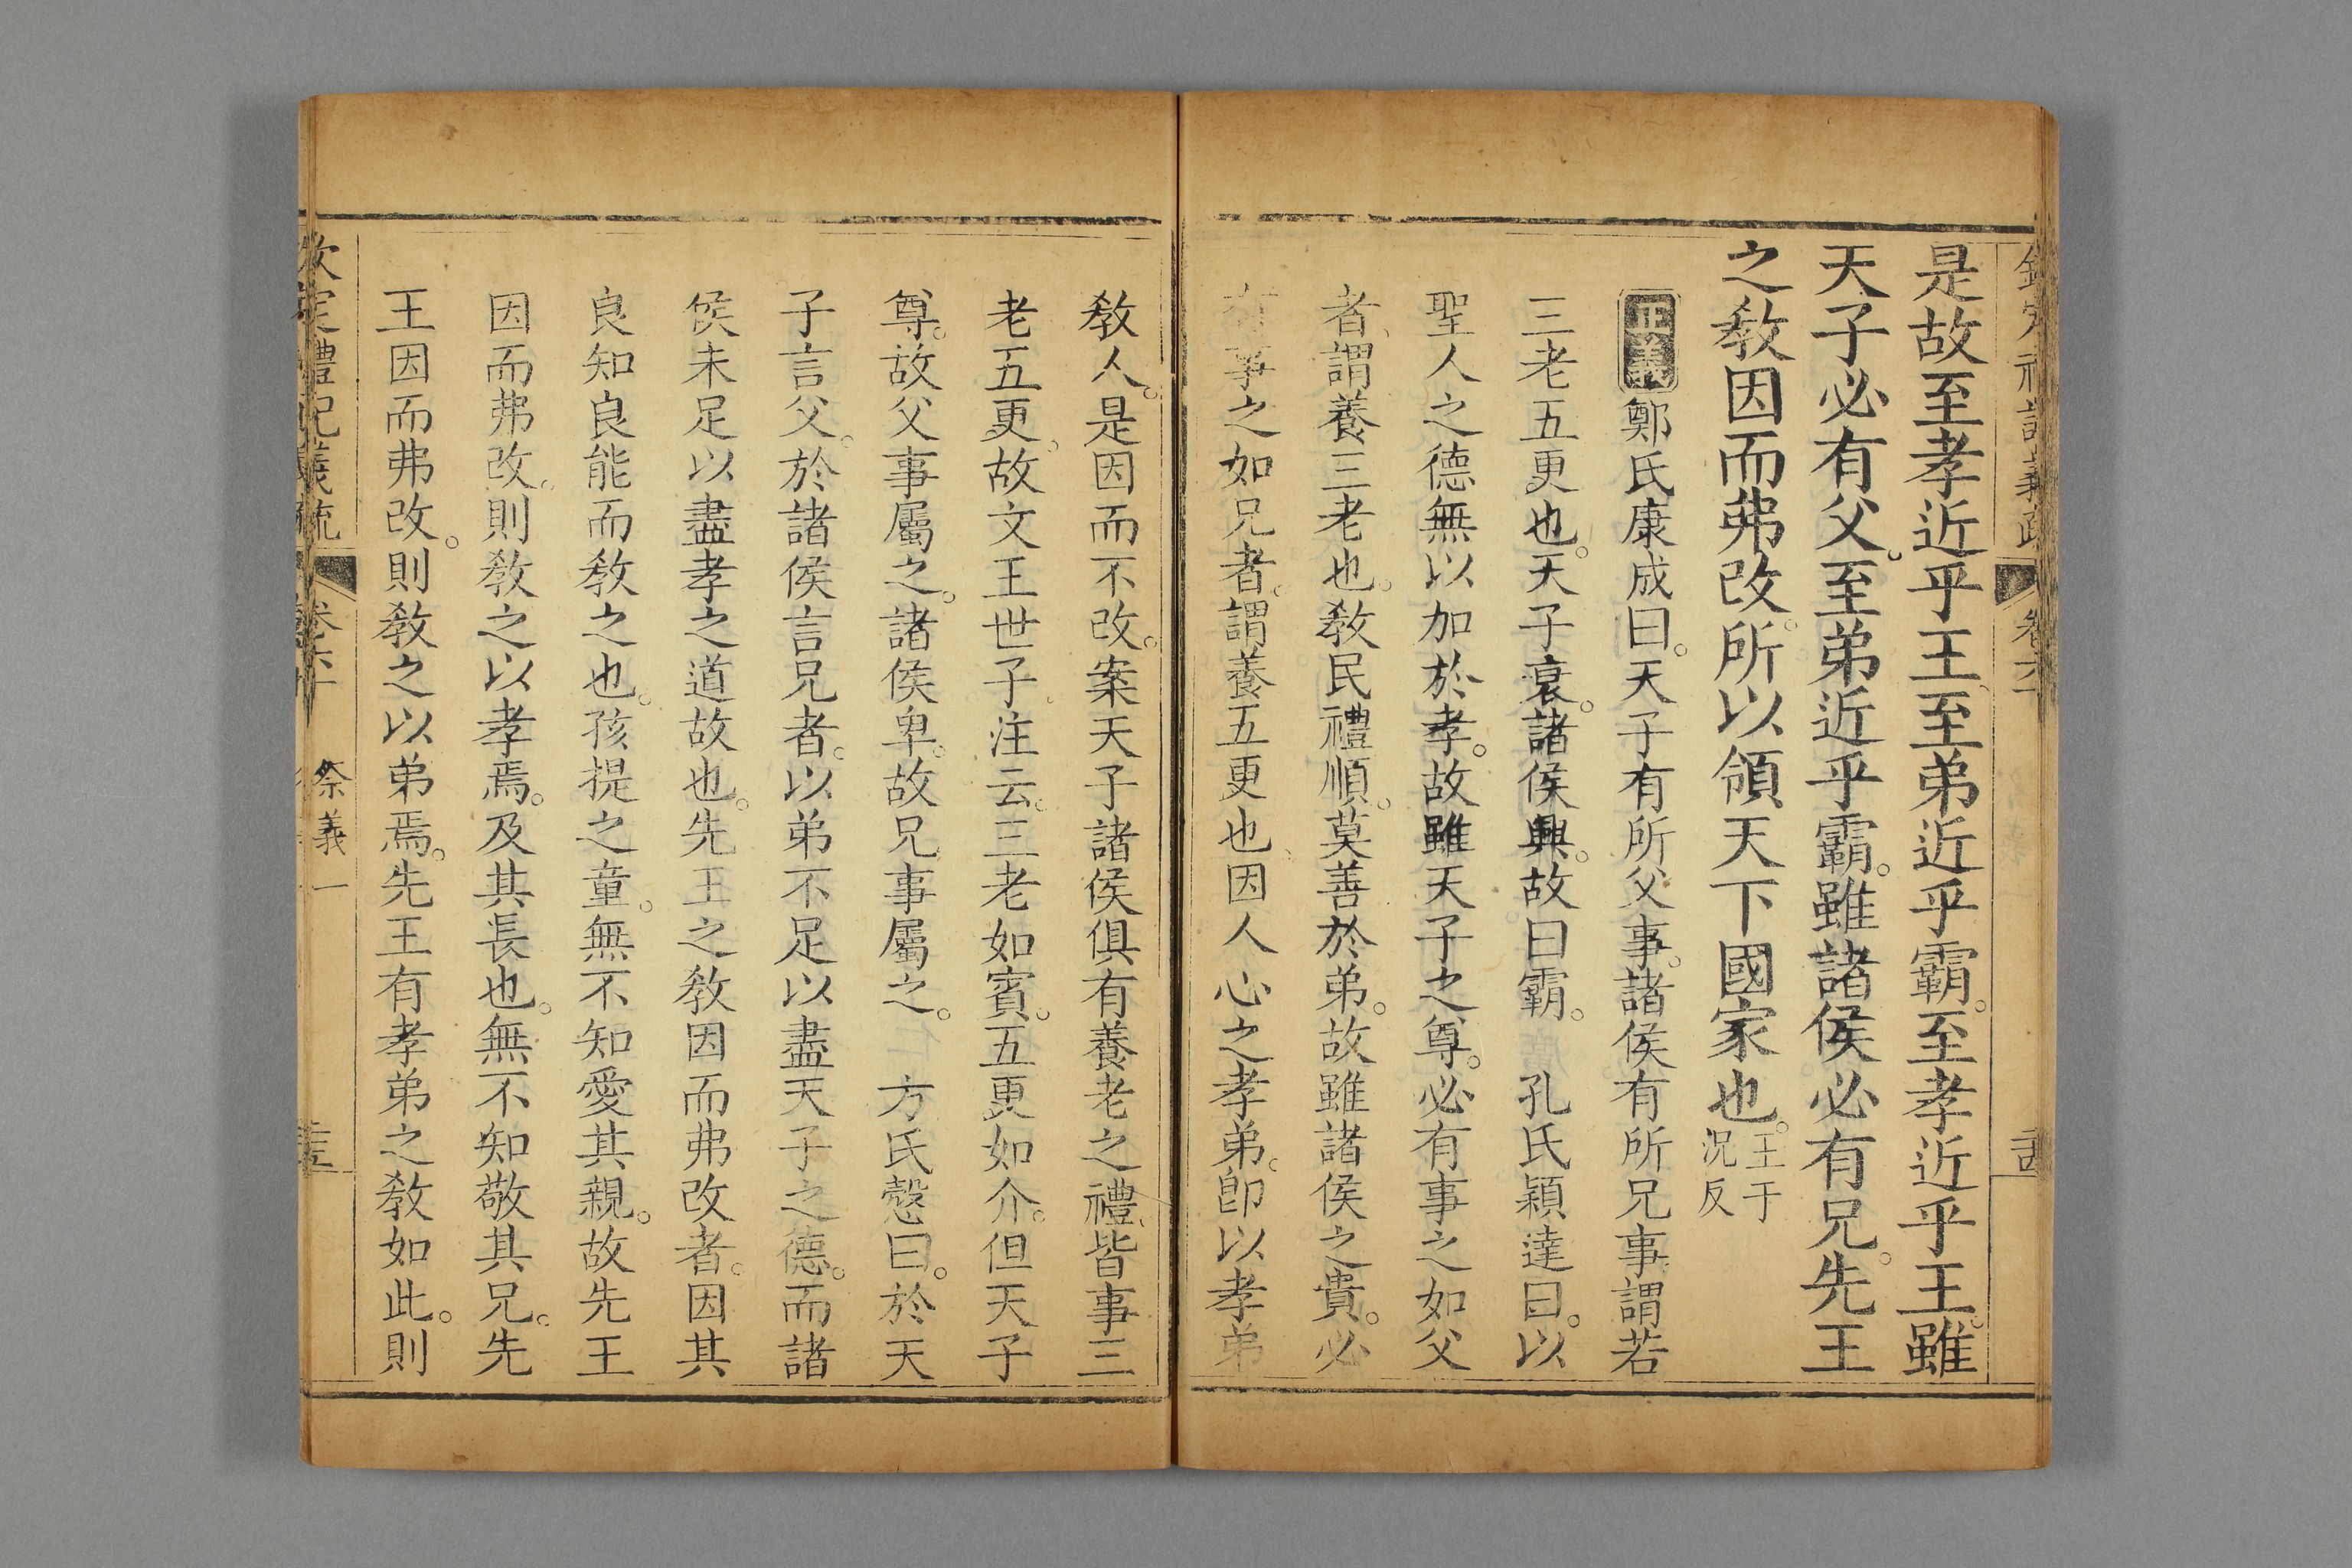 是故至孝近乎王、至弟近乎霸。至孝近乎王。雖
天子必有父。至弟近乎霸。雖諸侯必有兄。先王
之教因而弗改。所以領天下國家也。王于
況反
正義鄭氏康成曰。天子有所父事。諸侯有所兄事謂若
三老五更也。天子衰。諸侯興。故曰霸。 孔氏穎達曰。以
聖人之德無以加於孝。故雖天子之尊。必有事之如父
者、謂養三老也。教民禮順。莫善於弟。故雖諸侯之貴。必
有事之如兄者。謂養五更也、因人心之孝弟。即以孝弟
教人。是因而不改。案天子諸侯俱有養老之禮、皆事三
老五更。故文王世子注云。三老如賓。五更如介。但天子
尊。故父事屬之。諸侯卑。故兄事屬之。 方氏慤曰。於天
子言父。於諸侯言兄者。以弟不足以盡天子之德。而諸
侯未足以盡孝之道故也。先王之教因而弗改者。因其
良知良能而教之也。孩提之童。無不知愛其親。故先王
因而弗改。則教之以孝焉。及其長也。無不知敬其兄。先
王因而弗改。則教之以弟焉。先王有孝弟之教如此。則
欽定禮記義疏 卷六十 祭義一